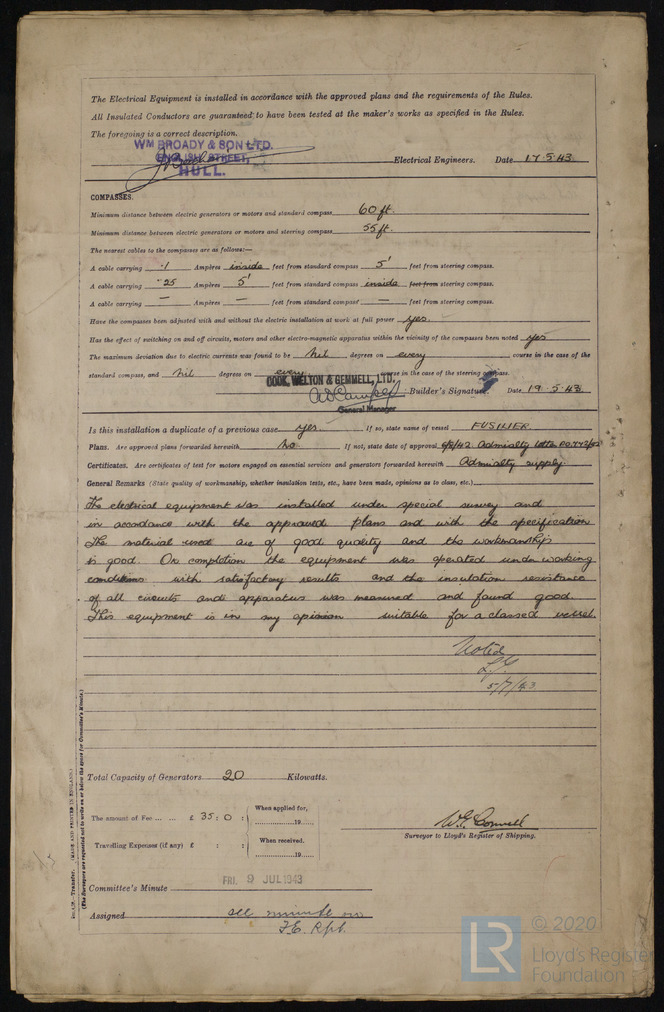 The Electrical Equipment is installed in accordance with the approved plans and the requirements of the Rules.
All Insulated Conductors are guaranteed to have been tested at the maker's works as specified in the Rules.
The foregoing is a correct description.
WM BROADY & SON LTD.
ENGLISH STREET,
HULL.
Electrical Engineers. Date 17.5.43.
COMPASSES.
Minimum distance between electric generators or motors and standard compass 60 ft.
Minimum distance between electric generators or motors and steering compass 55 ft.
The nearest cables to the compasses are as follows:—
A cable carrying .1 Ampères inside feet from standard compass 5' feet from steering compass.
A cable carrying .25 Ampères 5' feet from standard compass inside feet from steering compass.
A cable carrying — Ampères — feet from standard compass — feet from steering compass.
Have the compasses been adjusted with and without the electric installation at work at full power yes.
Has the effect of switching on and off circuits, motors and other electro-magnetic apparatus within the vicinity of the compasses been noted yes
The maximum deviation due to electric currents was found to be Nil degrees on every course in the case of the
standard compass, and Nil degrees on every course in the case of the steering compass.
COOK, WELTON & GEMMELL, LTD.
Builder's Signature. Date 19.5.43.
General Manager
Is this installation a duplicate of a previous case yes. If so, state name of vessel FUSILIER.
Plans. Are approved plans forwarded herewith No. If not, state date of approval Admiralty letter
Certificates. Are certificates of test for motors engaged on essential services and generators forwarded herewith Admiralty supply.
General Remarks (State quality of workmanship, whether insulation tests, etc., have been made, opinions as to class, etc.)
The electrical equipment was installed under special survey and
in accordance with the approved plans and with the specification
The material used are of good quality and the workmanship
is good. On completion the equipment was operated under working
conditions with satisfactory results and the insulation resistance
of all circuits and apparatus was measured and found good.
This equipment is in my opinion suitable for a classed vessel.
Noted
5/7/43
Total Capacity of Generators 20 Kilowatts.
The amount of Fee ... ... £ 35 : 0 :
When applied for,
19
Travelling Expenses (if any) £ : :
When received.
19
Surveyor to Lloyd's Register of Shipping.
Committee's Minute FRI. 9 JUL 1943
Assigned see minute on
F.E. Rpt.
Transfer. (MADE AND PRINTED IN ENGLAND.)
(The Surveyors are requested not to write on or below the space for Committee's Minute.)
LR
© 2020
Lloyd's Register
Foundation